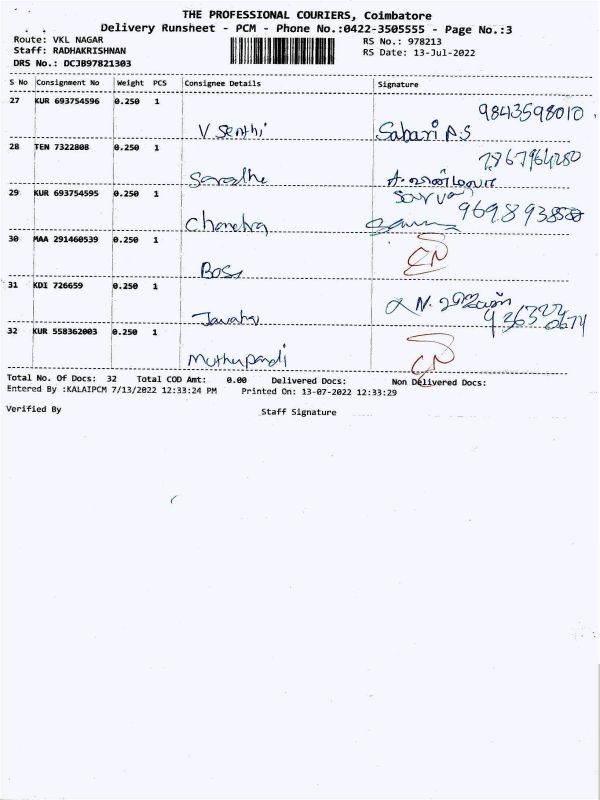 THE PROFESSIONAL COURIERS, Coimbatore
Delivery Runsheet - PCM - Phone No.:0422-3505555 - Page No.:3
Route: VKL NAGAR
Staff: RADHAKRISHNAN
DRS No.: DCJB97821303
RS No.: 978213
RS Date: 13-Jul-2022
S No Consignment No Weight PCS Consignee Details Signature
27 KUR 693754596 0.250 1
9843598010
V Senthi Sabari P.S
28 TEN 7322808 0.250 1
29 KUR 693754595 0.250 1
Chandra
30 MAA 291460539 0.250 1
Boss
CN
31 KDI 726659 0.250 1
Jawahr
32 KUR 558362003 0.250 1
Muthupandi CN
Total No. Of Docs: 32 Total COD Amt: 0.00 Delivered Docs: Non Delivered Docs:
Entered By :KALAIPCM 7/13/2022 12:33:24 PM Printed On: 13-07-2022 12:33:29
Verified By Staff Signature